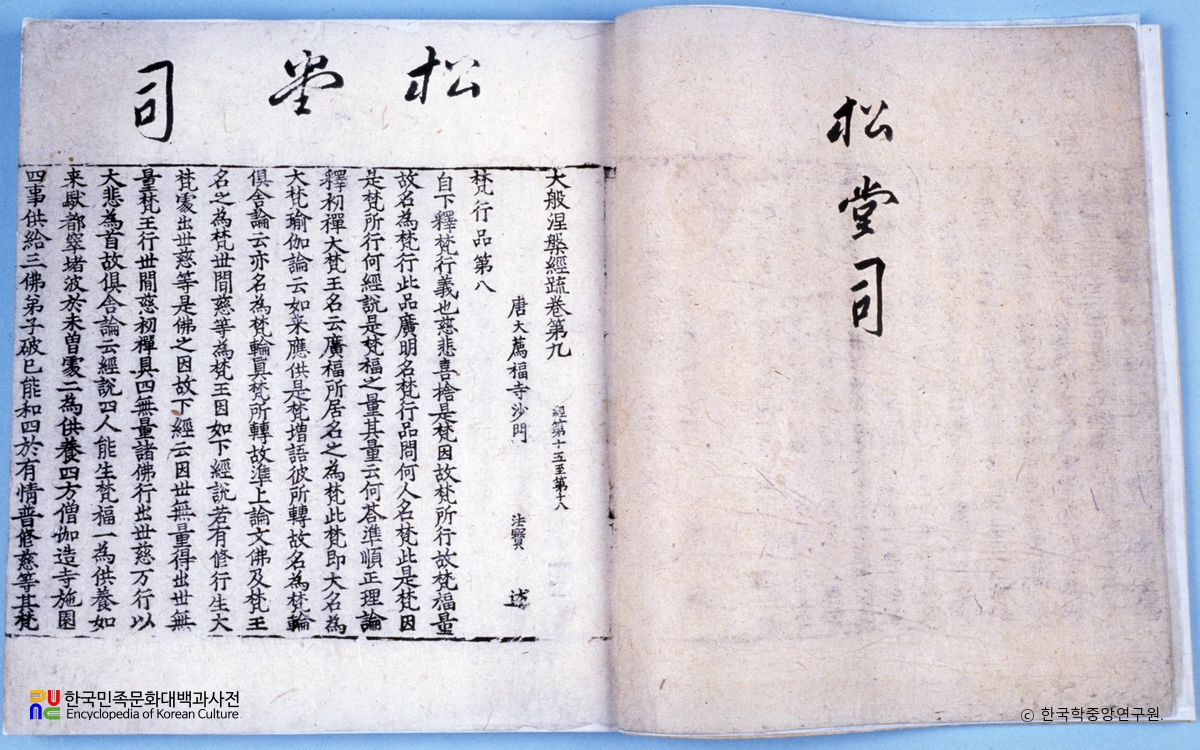 松堂司
松堂司
大般涅槃經疏卷第九 經第十五至第十八
唐大薦福寺沙門 法寶 述
梵行品第八
自下釋梵行義也慈悲喜捨是梵因故梵所行故梵福量
故名為梵行此品廣明名梵行品問何人名梵此是梵因
是梵所行何經說是梵福之量其量云何荅準順正理論
釋初禪大梵王名云廣福所居名之為梵此梵即大名為
大梵瑜伽論云如来應供是梵増語彼所轉故名為梵輪
俱舍論云亦名為梵輪真梵所轉故準上論文佛及梵王
名之為梵世間慈等為梵王因如下經說若有修行生大
梵處出世慈等是佛之因故下經云因世無量得出世無
量梵王行世間慈初禪具四無量諸佛行出世慈万行以
大悲為首故俱舍論云經說四人能生梵福一為供養如
来馱都窣堵波於未曽處二為供養四方僧伽造寺施園
四事供給三佛弟子破已能和四於有情普修慈等其梵
한국민족문화대백과사전
Encyclopedia of Korean Culture
© 한국학중앙연구원